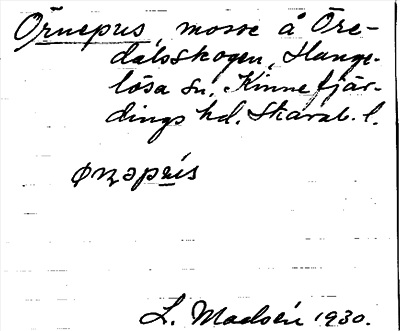 Örnepus, mosse å Öre-
dalsskogen, Hange-
lösa sn. Kinnefjär-
dings hd. Skarab. l.
L. Madsén 1930.